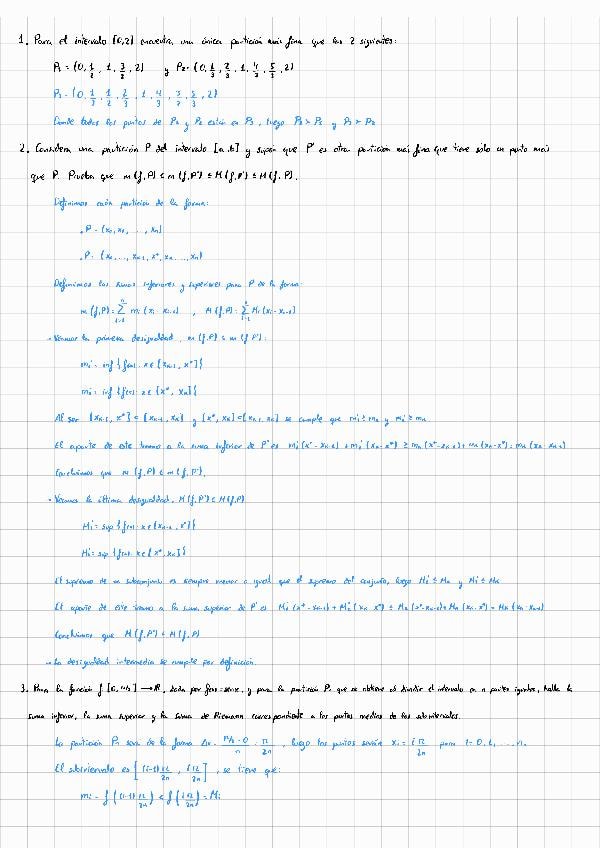 1. Para el intervalo [0,2] encuentra una única partición más fina que las 2 siguientes:
P₁ = {0, 1/2, 1, 3/2, 2} y P₂ = {0, 1/3, 2/3, 1, 4/3, 5/3, 2}
P₃ = {0, 1/3, 1/2, 2/3, 1, 4/3, 3/2, 5/3, 2}
Donde todos los puntos de P₁ y P₂ están en P₃, luego P₃ > P₁ y P₃ > P₂
2. Considera una partición P del intervalo [a,b] y supón que P' es otra partición más fina que tiene solo un punto más
que P. Prueba que m(f,P) ≤ m(f,P') ≤ M(f,P') ≤ M(f,P).
Definimos cada partición de la forma:
. P = {x₀, x₁, ..., xₙ}
. P' = {x₀, ..., xₖ₋₁, x*, xₖ, ..., xₙ}
Definimos las sumas inferiores y superiores para P de la forma:
m(f,P) = Σ mᵢ (xᵢ - xᵢ₋₁) , M(f,P) = Σ Mᵢ (xᵢ - xᵢ₋₁)
- Veamos la primera desigualdad, m(f,P) ≤ m(f,P'):
m₁' = inf {f(x): x ∈ [xₖ₋₁, x*]}
m₂' = inf {f(x): x ∈ [x*, xₖ]}
Al ser [xₖ₋₁, x*] ⊂ [xₖ₋₁, xₖ] y [x*, xₖ] ⊂ [xₖ₋₁, xₖ] se cumple que m₁' ≥ mₖ y m₂' ≥ mₖ
El aporte de este tramo a la suma inferior de P' es m₁'(x* - xₖ₋₁) + m₂'(xₖ - x*) ≥ mₖ(x* - xₖ₋₁) + mₖ(xₖ - x*) = mₖ(xₖ - xₖ₋₁)
Concluimos que m(f,P) ≤ m(f,P').
- Veamos la última desigualdad, M(f,P') ≤ M(f,P)
M₁' = sup {f(x): x ∈ [xₖ₋₁, x*]}
M₂' = sup {f(x): x ∈ [x*, xₖ]}
El supremo de un subconjunto es siempre menor o igual que el supremo del conjunto, luego M₁' ≤ Mₖ y M₂' ≤ Mₖ
El aporte de este tramo a la suma superior de P' es M₁'(x* - xₖ₋₁) + M₂'(xₖ - x*) ≤ Mₖ(x* - xₖ₋₁) + Mₖ(xₖ - x*) = Mₖ(xₖ - xₖ₋₁)
Concluimos que M(f,P') ≤ M(f,P)
- La desigualdad intermedia se cumple por definición.
3. Para la función f: [0, π/2] → ℝ, dada por f(x) = senx, y para la partición Pₙ que se obtiene al dividir el intervalo en n partes iguales, halla la
suma inferior, la suma superior y la suma de Riemann correspondiente a los puntos medios de los subintervalos.
La partición Pₙ será de la forma Δx = (π/2 - 0)/n = π/2n, luego los puntos serán xᵢ = i π/2n para i = 0, 1, ..., n.
El subintervalo es [(i-1)π/2n, iπ/2n], se tiene que:
mᵢ = f((i-1)π/2n) < f(iπ/2n) = Mᵢ